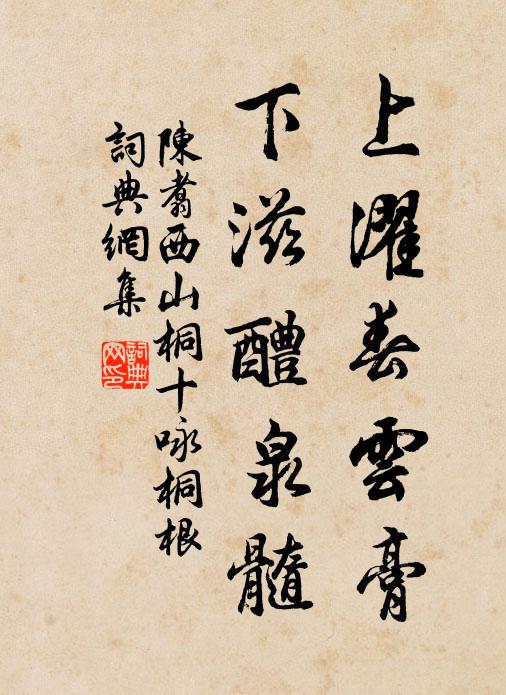 上濯春雲膏
下滋醴泉髓
陳翥西山桐十咏桐根
詞典網集
詞典網印